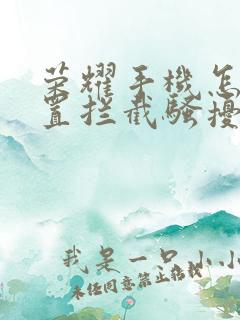 荣耀手機怎
置拦截騷擾
我是一只小小
未经同意禁止搭载